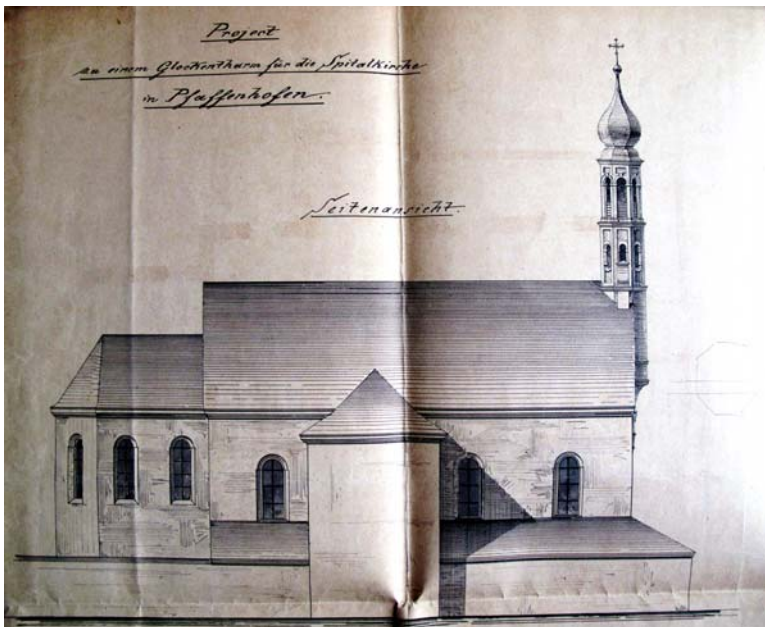 Project
zu einem Glockenthurm für die Spitalkirche
in Pfaffenhofen.
Seitenansicht.